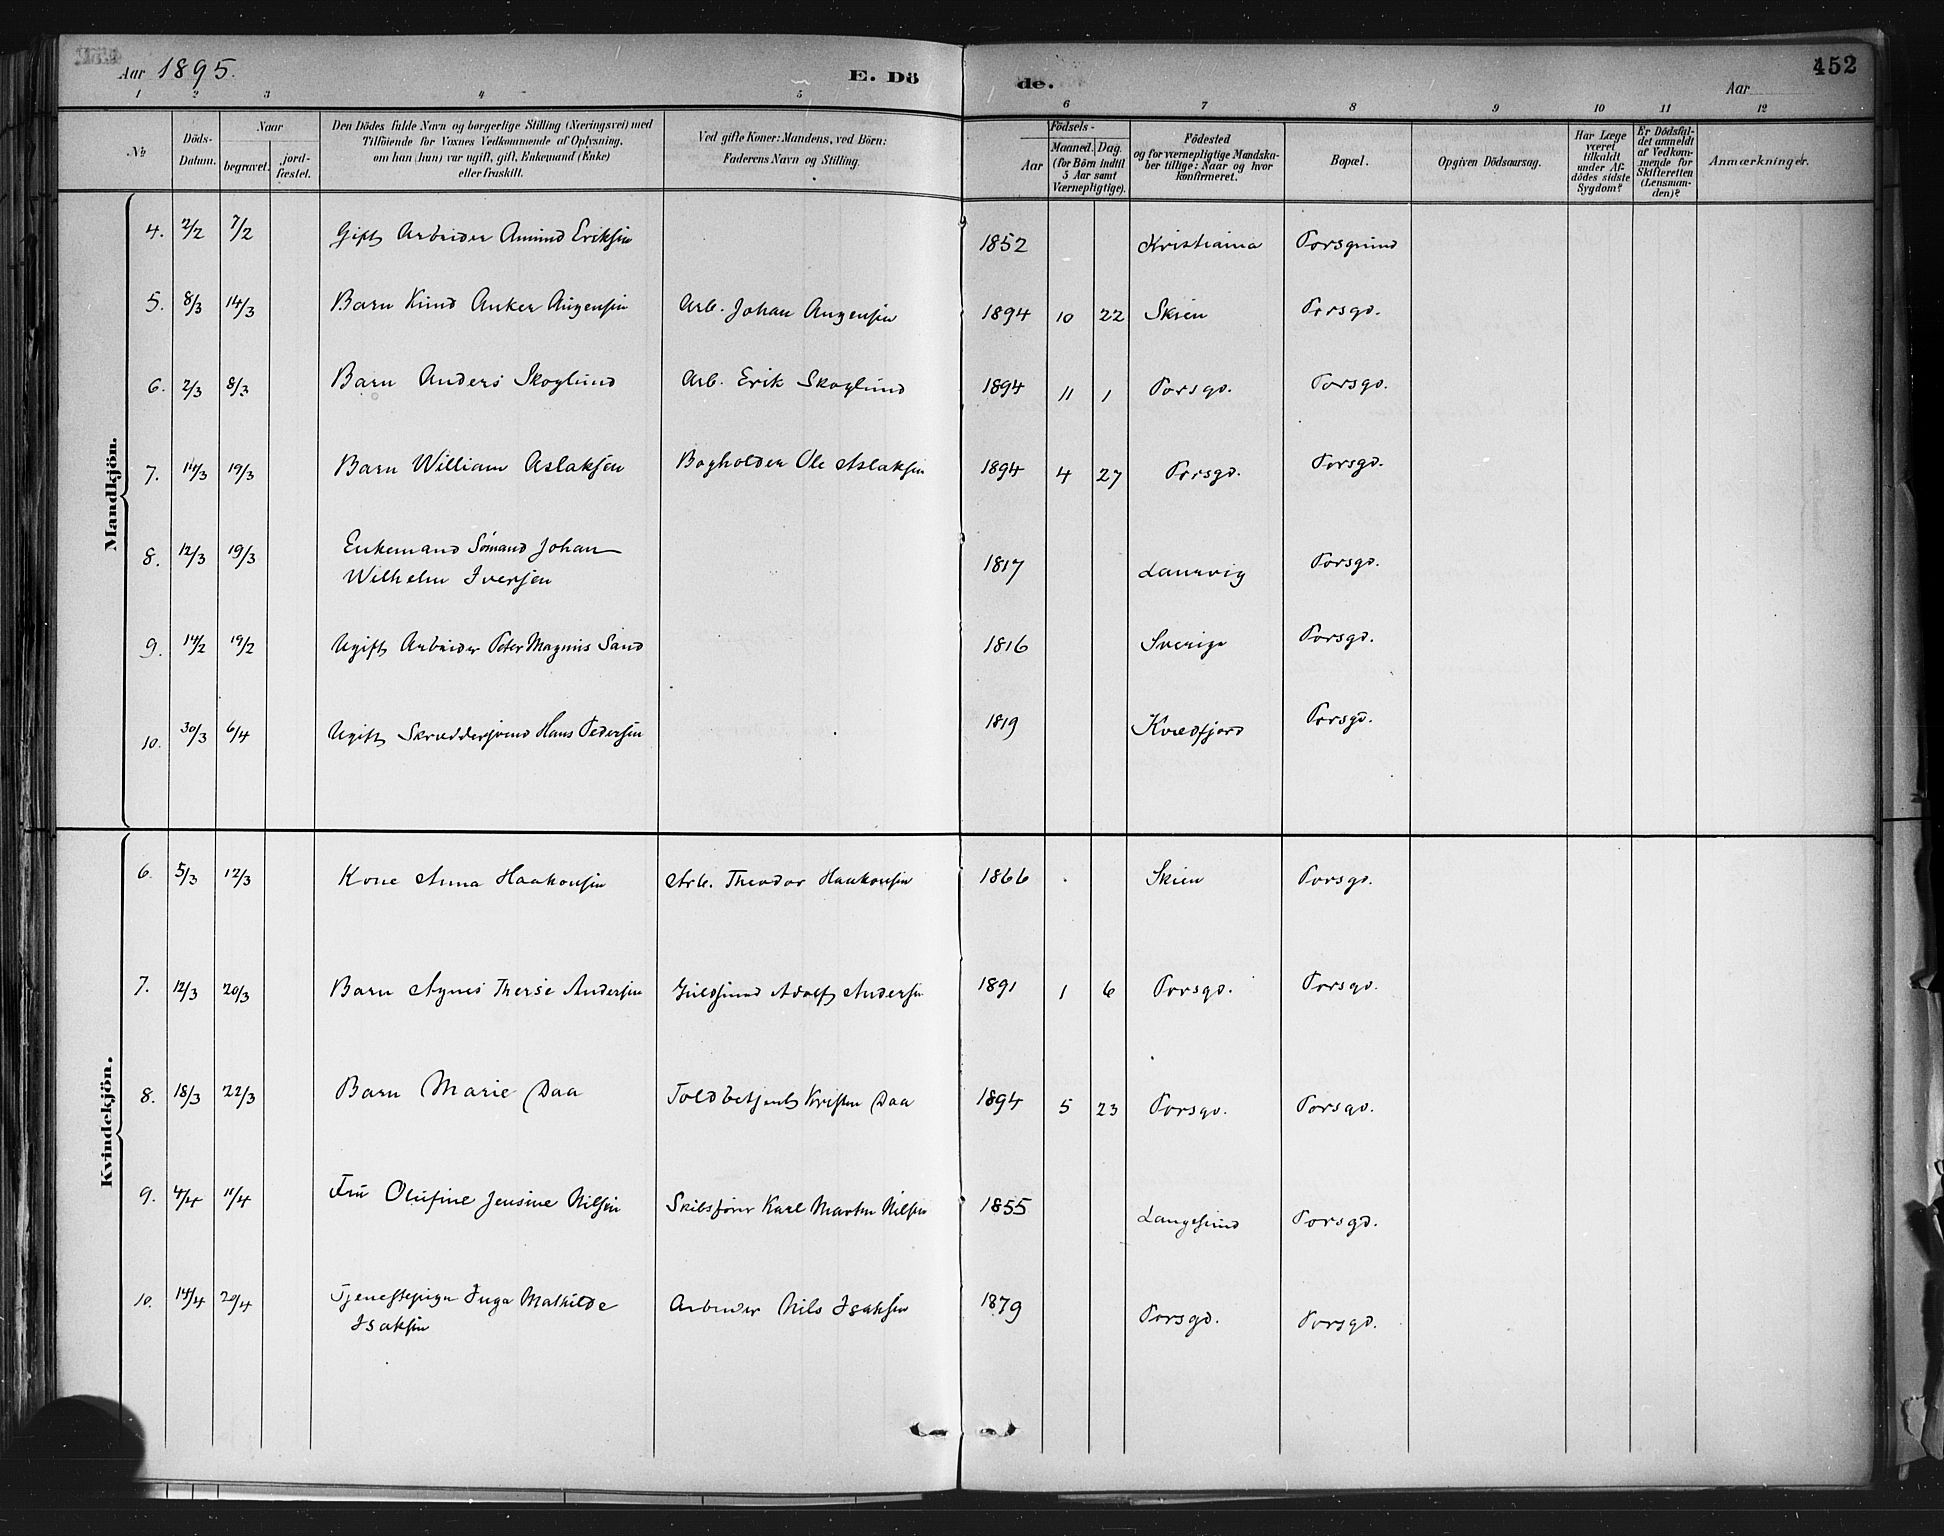 Aar 1895.
E. Dö
de.
Aar
452
1 2 3 4 5 6 7 8 9 10 11 12
№
Döds-Datum.
Naar
begravet.
jord-fæstet.
Den Dödes fulde Navn og borgerlige Stilling (Næringsvei) med
Tilföiende for Voxnes Vedkommende af Oplysning,
om han (hun) var ugift, gift, Enkemand (Enke)
eller fraskilt.
Ved gifte Koner: Mandens, ved Börn:
Faderens Navn og Stilling.
Födsels-
Aar
Maaned. Dag.
(for Börn indtil
5 Aar samt
Værnepligtige).
Födested
og for værnepligtige Mandska-
ber tillige: Naar og hvor
konfirmeret.
Bopæl.
Opgiven Dödsaarsag.
Har Læge
været
tilkaldt
under Af-
dödes sidste
Sygdom?
Er Dödsfal-
det anmeldt
af Vedkom-
mende for
Skifteretten
(Lensman-
den)?
Anmærkninger.
Mandkjön.
4. 2/2 7/2 Gift Arbeider Amund Eriksen 1852 Kristiania Porsgrund
5. 8/3 14/3 Barn Knud Anker Augensen Arb. Johan Augensen 1894 10 22 Skien Porsgd.
6. 2/3 8/3 Barn Anders Skoglund Arb. Erik Skoglund 1894 11 1 Porsgd. Porsgd.
7. 14/3 19/3 Barn William Aslaksen Bogholder Ole Aslaksen 1894 4 27 Porsgd. Porsgd.
8. 12/3 19/3 Enkemand Sömand Johan
Wilhelm Iversen 1817 Laurvig Porsgd.
9. 14/2 19/2 Ugift Arbeider Peter Magnus Sand 1816 Sverige Porsgd.
10. 30/3 6/4 Ugift Skræddersvend Hans Pedersen 1819 Kvædfjord Porsgd.
Kvindekjön.
6. 5/3 12/3 Kone Anna Haakonsen Arb. Theodor Haakonsen 1866 Skien Porsgd.
7. 12/3 20/3 Barn Agnes Therse Andersen Guldsmed Adolf Andersen 1891 1 6 Porsgd. Porsgd.
8. 18/3 22/3 Barn Marie Daa Toldbetjent Kristen Daa 1894 5 23 Porsgd. Porsgd.
9. 4/4 11/4 Fru Olufine Jensine Nilsen Skibsförer Karl Martin Nilsen 1855 Langesund Porsgd.
10. 14/4 20/4 Tjenestepige Inga Mathilde
Isaksen Arbeider Nils Isaksen 1879 Porsgd. Porsgd.